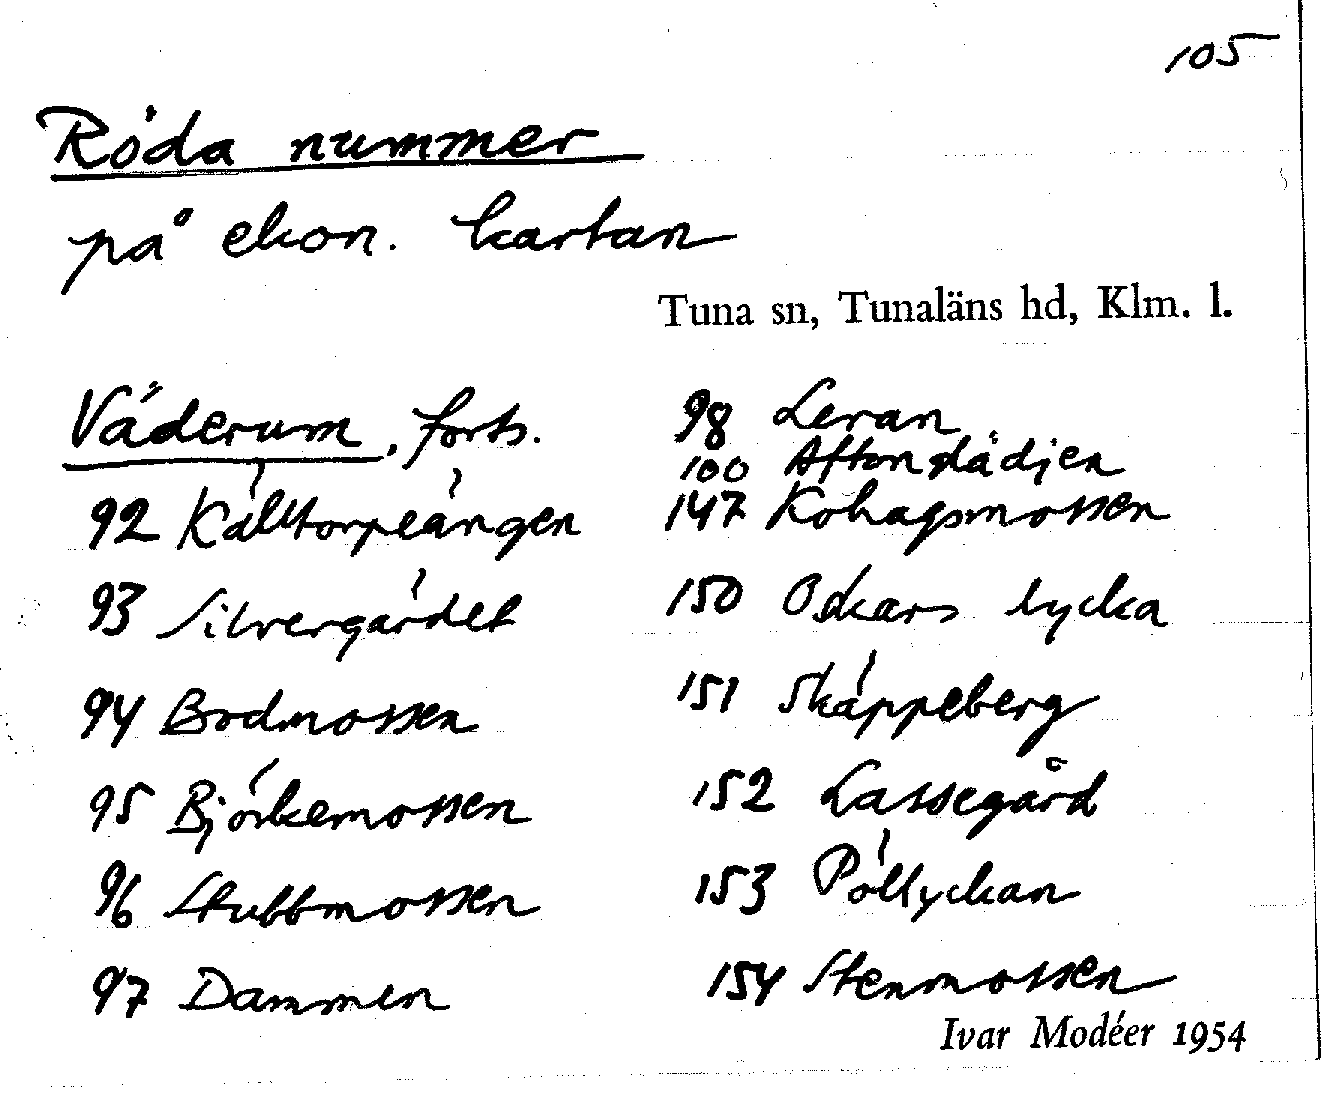 105
Röda nummer
på ekon. kartan
Tuna sn, Tunaläns hd, Klm. l.
Väderum, forts.
92 Källtorpeängen
93 Silvergärdet
94 Bodmossen
95 Björkemossen
96 Stubbmossen
97 Dammen
98 Leran
100 Aftonglädjen
147 Kohagsmossen
150 Oskars lycka
151 Skäppeberg
152 Lassegård
153 Pöllyckan
154 Stenmossen
Ivar Modéer 1954